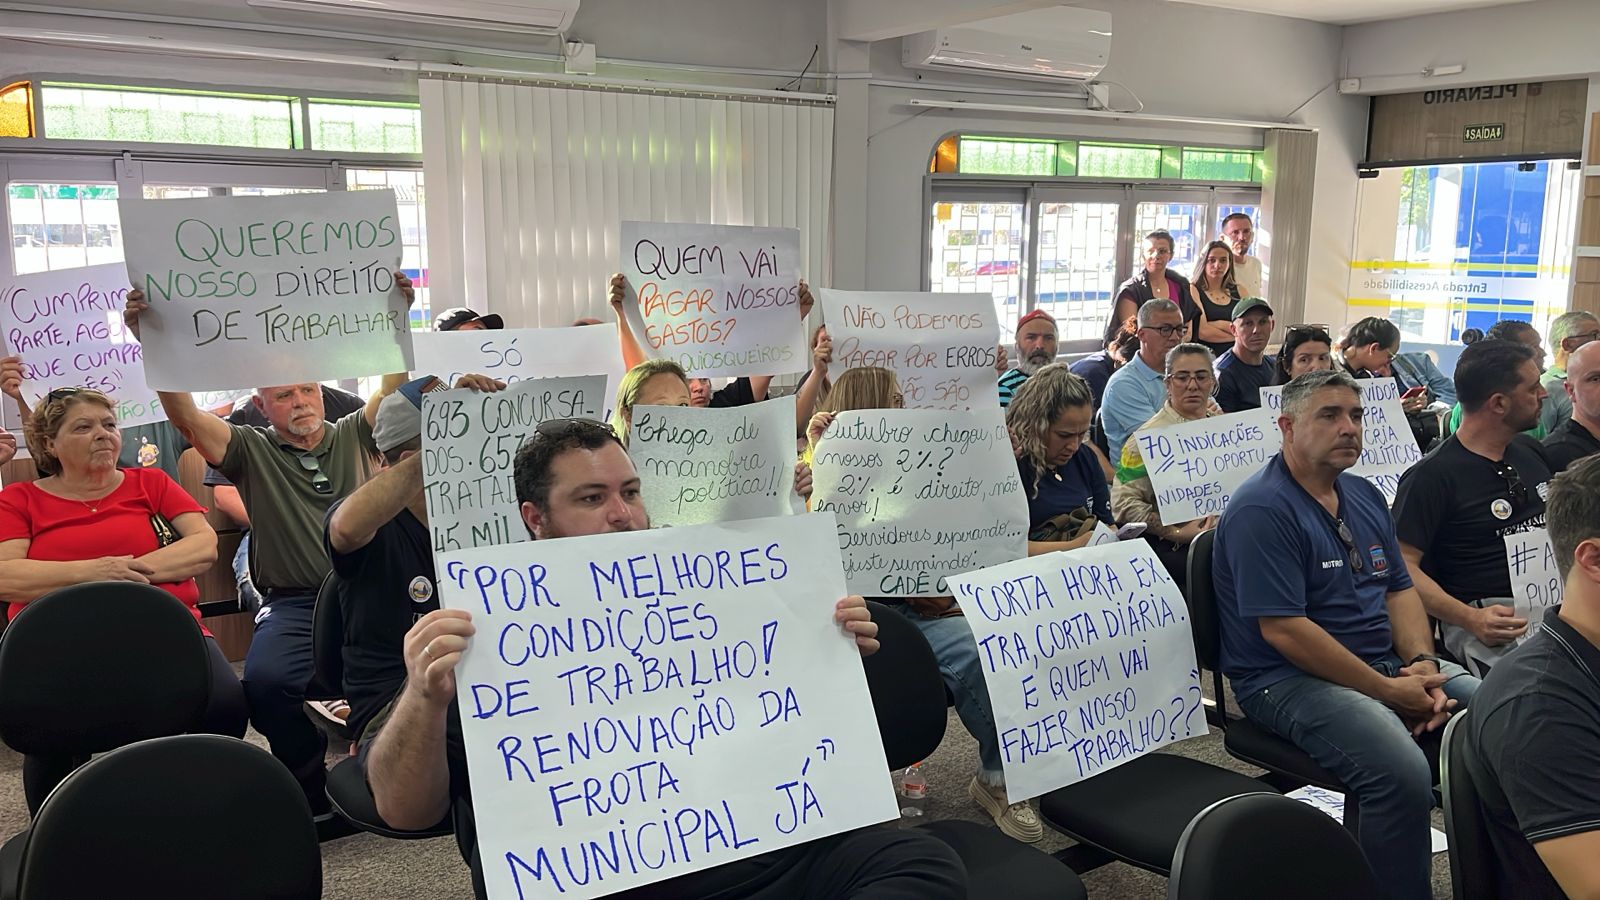 PLENÁRIO
SAÍDA
Entrada Acessibilidade
"CUMPRIM
PARTE, AGO
QUE CUMPR
QUEREMOS
NOSSO DIREITO
DE TRABALHAR!
QUEM VAI
PAGAR NOSSOS
GASTOS?
QUIOSQUEIROS
SÓ
NÃO PODEMOS
PAGAR POR ERROS
NÃO SÃO
693 CONCURSA-
DOS. 657
TRATAD
45 MIL
Chega de
manobra
política!!
Outubro chegou, ca
nossos 2%?
2% é direito, não
favor!
Servidores esperando...
ajuste sumindo!
CADÊ O
70 INDICAÇÕES
70 OPORTU-
NIDADES
ROUB
VIDOR
PRA
CRIA
POLÍTICO
"POR MELHORES
CONDIÇÕES
DE TRABALHO!
RENOVAÇÃO DA
FROTA
MUNICIPAL JÁ"
"CORTA HORA EX.
TRA, CORTA DIÁRIA.
E QUEM VAI
FAZER NOSSO
TRABALHO??"
MOTORIS
# A
PUBL